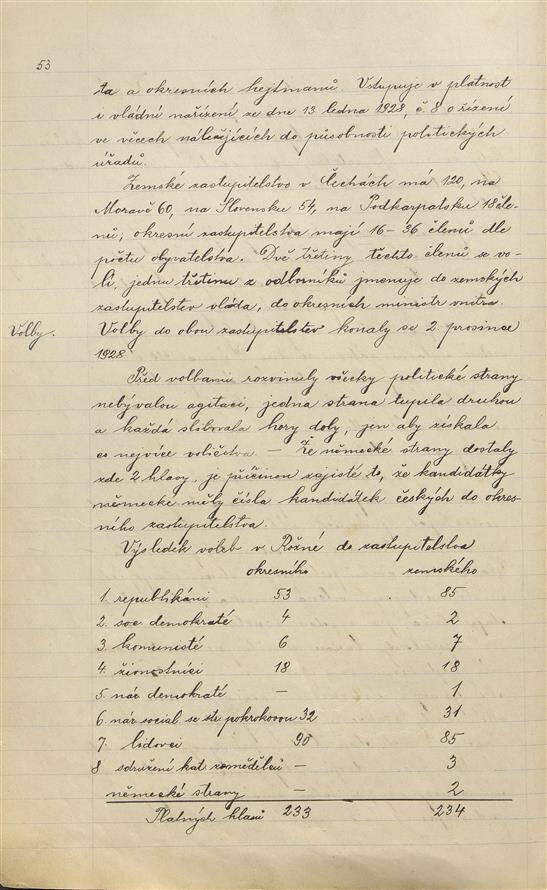 53
ta a okresních hejtmanů. Vstupuje v platnost
i vládní nařízení ze dne 13 ledna 1928, č. 8 o řízení
ve věcech náležejících do působnosti politických
úřadů.
Zemské zastupitelstvo v Čechách má 120, na
Moravě 60, na Slovensku 54, na Podkarpatsku 18 čle-
nů; okresní zastupitelstva mají 16-36 členů dle
počtu obyvatelstva. Dvě třetiny těchto členů se vo-
lí, jednu třetinu z odborníků jmenuje do zemských
zastupitelstev vláda, do okresních ministr vnitra.
Volby.
Volby do obou zastupitelstev konaly se 2. prosince
1928
Před volbami rozvinuly všecky politické strany
nebývalou agitaci, jedna strana tupila druhou
a každá slibovala hory doly, jen aby získala
co nejvíce voličstva. — Že německé strany dostaly
zde 2 hlasy, je příčinou zajisté to, že kandidátky
německé měly čísla kandidátek českých do okres-
ního zastupitelstva.
Výsledek voleb v Rožné do zastupitelstva
okresního zemského
1. republikáni 53 85
2. soc. demokraté 4 2
3. komunisté 6 7
4. živnostníci 18 18
5. nár demokraté — 1.
6. nár social. se str pokrokovou 32 31
7. lidovci 90 85
8 sdružení kat zemědělců — 3
německé strany — 2
Platných hlasů 233 234